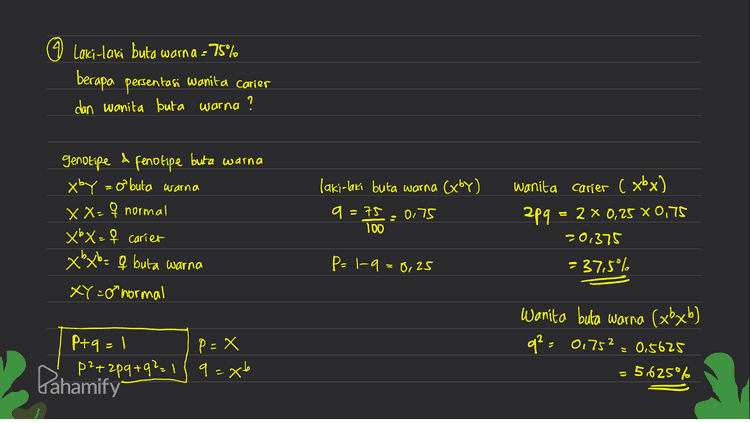 ④ Laki-laki buta warna = 75%
berapa persentasi wanita carier
dan wanita buta warna ?
genotipe & fenotipe buta warna
XᵇY = ♂ buta warna
XX = ♀ normal
XᵇX = ♀ carier
XᵇXᵇ = ♀ buta warna
XY = ♂ normal
P+q = 1
P²+2pq+q² = 1
P = X
q = Xᵇ
laki-laki buta warna (XᵇY)
q = 75/100 = 0,75
P = 1-q = 0,25
wanita carier (XᵇX)
2pq = 2 x 0,25 x 0,75
= 0,375
= 37,5%
Wanita buta warna (XᵇXᵇ)
q² = 0,75² = 0,5625
= 5,625%
Pahamify